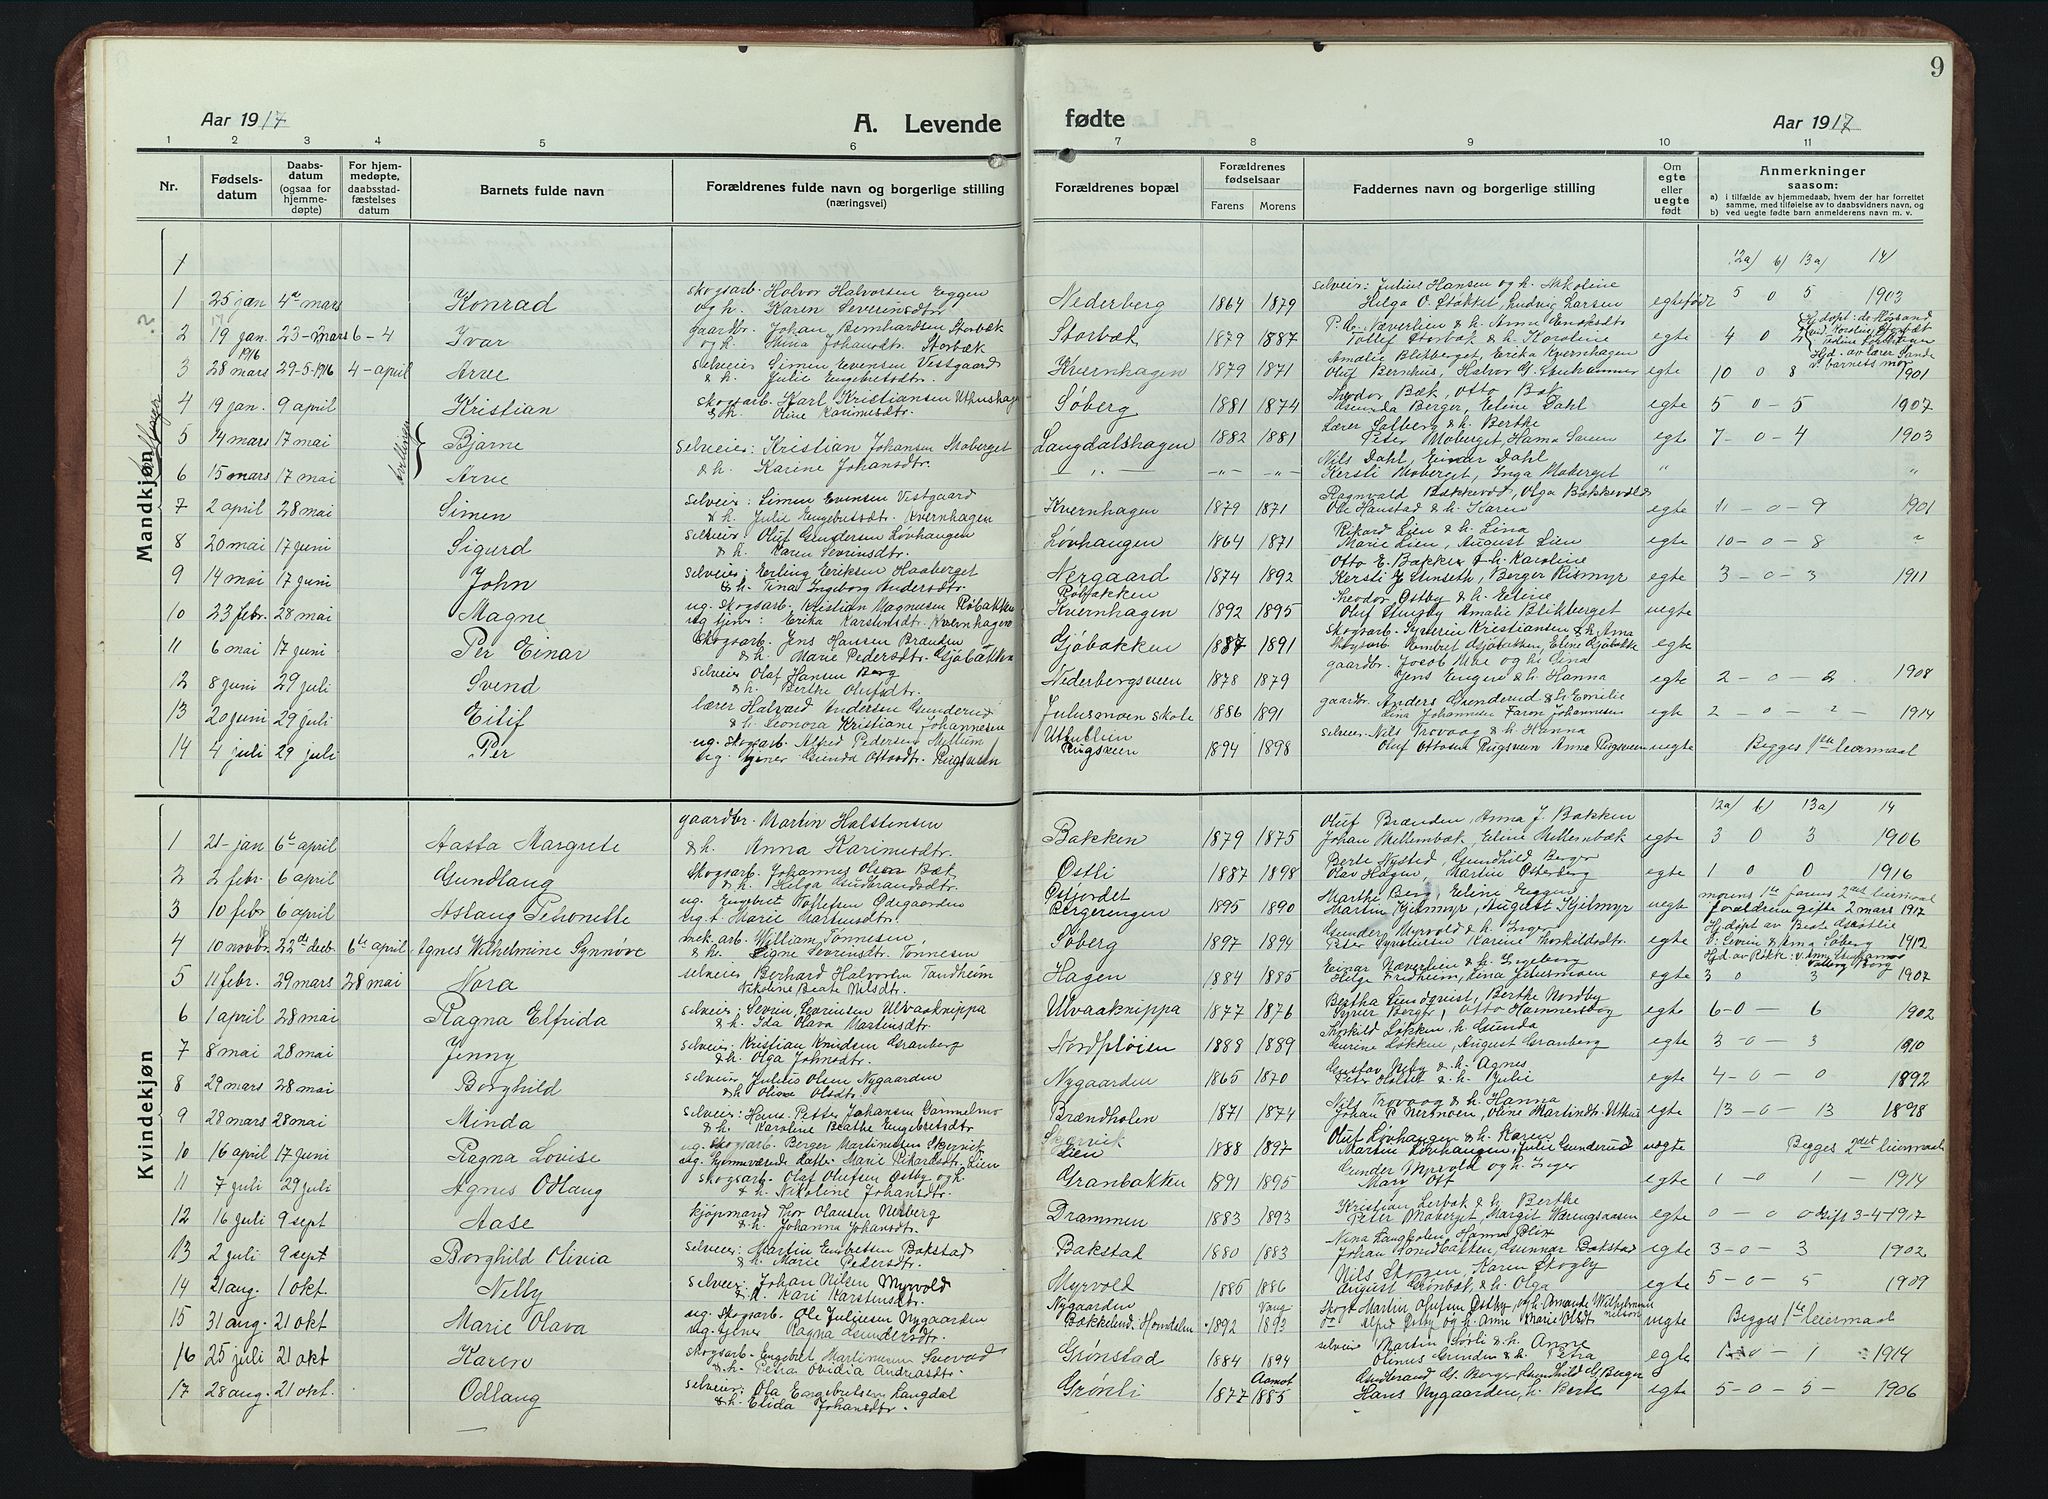 9
Aar 1917
A. Levende
fødte
Aar 1917
1 2 3 4 5 6 7 8 9 10 11
Nr.
Fødsels-
datum
Daabs-
datum
(ogsaa for
hjemme-
døpte)
For hjem-
medøpte,
daabsstad-
fæstelses
datum
Barnets fulde navn
Forældrenes fulde navn og borgerlige stilling
(næringsvei)
Forældrenes bopæl
Forældrenes
fødselsaar
Farens Morens
Faddernes navn og borgerlige stilling
Om
egte
eller
uegte
født
Anmerkninger
saasom:
a) i tilfælde av hjemmedaab, hvem der har forrettet
samme, med tilføielse av to daabsvidners navn, og
b) ved uegte fødte barn anmelderens navn m. v.
Mandkjøn
1
12a) 6) 13a) 14)
1 25 jan 4de mars Konrad skogsarb. Halvor Halvorsen Eggen Nederberg 1864 1879 selveier: Julius Hansen og h. Nikoline egtefødt 5 0 5 1903
og h. Karen Severinsdtr Helga O. Stokket, Ludvig Larsen
2 19 jan. 23-mars 6-4 Ivar gaardbr. Johan Bernhardsen Storbæk Storbæk 1879 1887 egte 4 0
og h. Mina Johansdtr. Storbæk Tollef Storbæk & h. Karoline
1916
3 28 mars 29-5-1916 4-april Arve selveier Simen Evensen Vestgaard Kvernhagen 1879 1871 Amalie Blikberget, Erika Kvernhagen egte 10 0 8 1901
& h. Julie Engebretsdtr.
Hjd. av lærer Sande
4 19 jan. 9 april Kristian skogsarb. Karl Kristiansen Uthushagen Søberg 1881 1874 Theodor Bæk, Otto Bæk egte 5-0-5 1907
& h. Oline Karinesdtr. Gunda Berger, Eline Dahl
tvillinger
5 14 mars 17 mai Bjarne selveier: Kristian Johansen Moberget Langdalshagen 1882 1881 Lærer Salberg & h. Berthe egte 7-0-4 1903
& h. Karine Johansdtr. Peter Moberget, Hanna Særen
6 15 mars 17 mai Arve -„- -„- -„- Nils Dahl, Einar Dahl " "
Kersti Moberget, Inga Moberget
7 2 april 28 mai Simen selveier: Simen Evensen Vestgaard Kvernhagen 1879 1871 Ragnvald Bækkevold, Olga Bækkevold egte 11-0-9 1901
& h. Julie Engebretsdtr. Kvernhagen Ole Hanstad & h. Karen
8 20 mai 17 juni Sigurd selveier Oluf Gundersen Løvhaugen Løvhaugen 1864 1871 Rikard Lien & h. Lina egte 10-0-8 "
& h. Karen Sevrinsdtr. Marie Lien, August Lien
9 14 mai 17 juni John selveier: Erling Eriksen Haaberget Nergaard 1874 1892 Otto E. Bakken & h. Karoline egte 3-0-3 1911
& h. Tina Ingeborg Andersdtr. Berger Rismyr
10 23 febr. 28 mai Magne ug. skogsarb. Kristian Magnusen Røbakken Røbakken Kvernhagen 1892 1895 Theodor Østby & h. Eline uegte
ug tjener: Erika Karstensdtr. Kvernhagen Amalie Blikberget
11 6 mai 17 juni Per Einar skogsarb. Jens Hansen Brænden Gjøbakken 1887 1891 skogsarb. Syverin Kristiansen & h. Anna egte
& h. Marie Pedersdtr. Gjøbakken skogsarb. Embret Gjøbakken, Eline Gjøbakk
12 8 juni 29 juli Svend selveier Olaf Hansen Berg Nederbergsveen 1878 1879 gaardbr. Jacob Moe og h. Lina egte 2-0-2 1908
& h. Berthe Olufsdtr. Jens Engene & h. Hanna
13 20 juni 29 juli Eilif lærer Halvard Andersen Gunderud Julusmoen skole 1886 1891 gaardbr. Anders Gunderud & h. Emilie egt 2-0-2 1914
& h. Leonora Kristiane Johannesen Lina Johannesen Faron Johannesen
14 4 juli 29 juli Per ug. skogsarb. Alfred Pedersen Mellum Rugsveen 1894 1898 selveier Nils Trovaag & h. Hanna uegte Begges 1ste leiermaal
ug. tjener Gunda Ottosdtr. Rugsveen Oluf Ottosen Rugsveen Anna Rugsveen
Kvindekjøn
12a) 6) 13a) 14
1 21-jan 6te april Aasta Margrete gaardbr. Martin Halstensen Bakken 1879 1875 Oluf Brænden, Anna J. Bakken egte 3 0 3 1906
& h. Anna Karinesdtr. Johan Mellembæk, Eline Mellembæk
2 2 febr. 6 april Gundlaug skogsarb. Johannes Olsen Bæk Østli 1887 1898 Berte Nysted, Gundhild Berger egte 1 0 0 1916
& h. Helga Gudbrandsdtr. Olav Hagen, Martine Osterberg
3 10 febr 6 april Aslaug Petronelle ug. Engebret Tollefsen Ødegaarden Østfjordet Bergerengen 1895 1890 Marthe Berg, Eline Eggen uegte morens 1ste farens 2det leiermaal
ug. t. Marie Martinsdtr. Martin Kjilmyr, August Kjilmyr forældrene gifte 2 mars 1917
4 10 novbr. 22de decb. 6te april Agnes Wilhelmine Synnøve mek. arb. William Tønnesen, Søberg 1897 1894 Gunder Myrvold & h. Inger egte 1912
& h. Signe Sevrensdtr. Tønnesen Karine Torkildsdtr.
5 11 febr. 29 mars 28 mai Nora selveier Berhard Halvorsen Tandheim Hagen 1884 1885 Einar Næverlien & h. Ingeborg egte 3 0 3 1907
Nikoline Beate Nilsdtr. Helge Fridheim, Lina Julusmoen
6 1 april 28 mai Ragna Elfrida selveier: Sevrin Sevrinsen Ulvaaknippa Ulvaaknippa 1877 1876 Bertha Lundqvist, Berthe Nordby egte 6-0-6 1902
& h. Ida Olava Martinsdtr. Syver Berger, Otto Hammersbog
7 8 mai 28 mai Jenny selveier: Kristian Knudsen Granberg Nordpløien 1888 1889 Thorkild Løkken, h. Gunda egte 3-0-3 1910
& h. Olga Johnsdtr. Gurine Løkken, August Granberg
8 29 mars 28 mai Borghild selveier Julius Olsen Nygaarden Nygaarden 1865 1870 Gustav Neby & h. Agnes egte 4-0-0 1892
& h Oline Olsdtr. Peter Holset & h. Julie
9 28 mars 28 mai Minda selveier: Hans Petter Johansen Gammelmo Brændholen 1871 1874 Nils Trovaag & h. Hanna egte 13-0-13 1898
& h. Karoline Beathe Engebretsdtr. Johan P. Nermoen, Oline Martindtr. Uthus
10 16 april 17 juni Ragna Lovise ug. skogsarb. Berger Martinusen Skjervik Skjærvik Lien 1888 1897 Oluf Løvhaugen & h. Karen uegte Begges 2det leiermaal
ug. hjemmeværende datter Marie Rikardsdtr. Lien Martin Løvhaugen, Julie Gunderud
11 7 juli 29 juli Agnes Odlaug skogsarb. Olaf Olufsen Østby og h. Granbakken 1891 1895 Gunder Myrvold og h. Inger egte 1-0-1-1914
& h. Nikoline Johansdtr. Mary Oft
12 16 juli 9 sept Aase kjøpmand Thor Olausen Nerberg Drammen 1883 1893 Berthe egte 0-0-0 Gift 3-4-1917
& h. Johanna Johansdtr. Peter Moberget, Margit Væringsaasen
13 2 juli 9 sept Borghild Olivia selveier: Martin Engebretsen Bakstad Bakstad 1880 1883 Nina Langholen, Hanna Blix egte 3-0-3 1902
& h. Marie Pedersdtr. Gunnar Bakstad
14 21 aug. 1 okt Nelly selveier: Johan Nilsen Myrvold Myrvold 1885 1886 Nils Skogen, Karen Skogby egte 5-0-5 1909
& h. Kari Karstensdtr. August Grønbæk & h. Olga
15 31 aug. 21 okt Marie Olava ug. skogsarb. Ole Juliusen Nygaarden Nygaarden 1892 Vang 1893 Martin Olufsen Østby, og h. Amanda Wilhelmine uegte Begges 1ste leiermaal
ug. tjener Ragna Gundersdtr. Alfred Østby og h. Anne Marie Olsdt
16 25 juli 21 okt Karen skogsarb. Engebret Martinusen Grønstad 1884 1894 selveier Martin Sørli & h. Anne egte 1-0-1 1914
& h. Petra Ovidia Andreasdtr. Olinus Grunden & h. Petra
17 28 aug. 21 okt. Odlaug selveier: Ola Engebretsen Langdal Grønli 1877 Aamot 1885 Gudbrand G. Berger, Gundhild G. Berger egte 5-0-5- 1906
& h. Elida Johansdtr. Hans Nygaarden, h. Berte